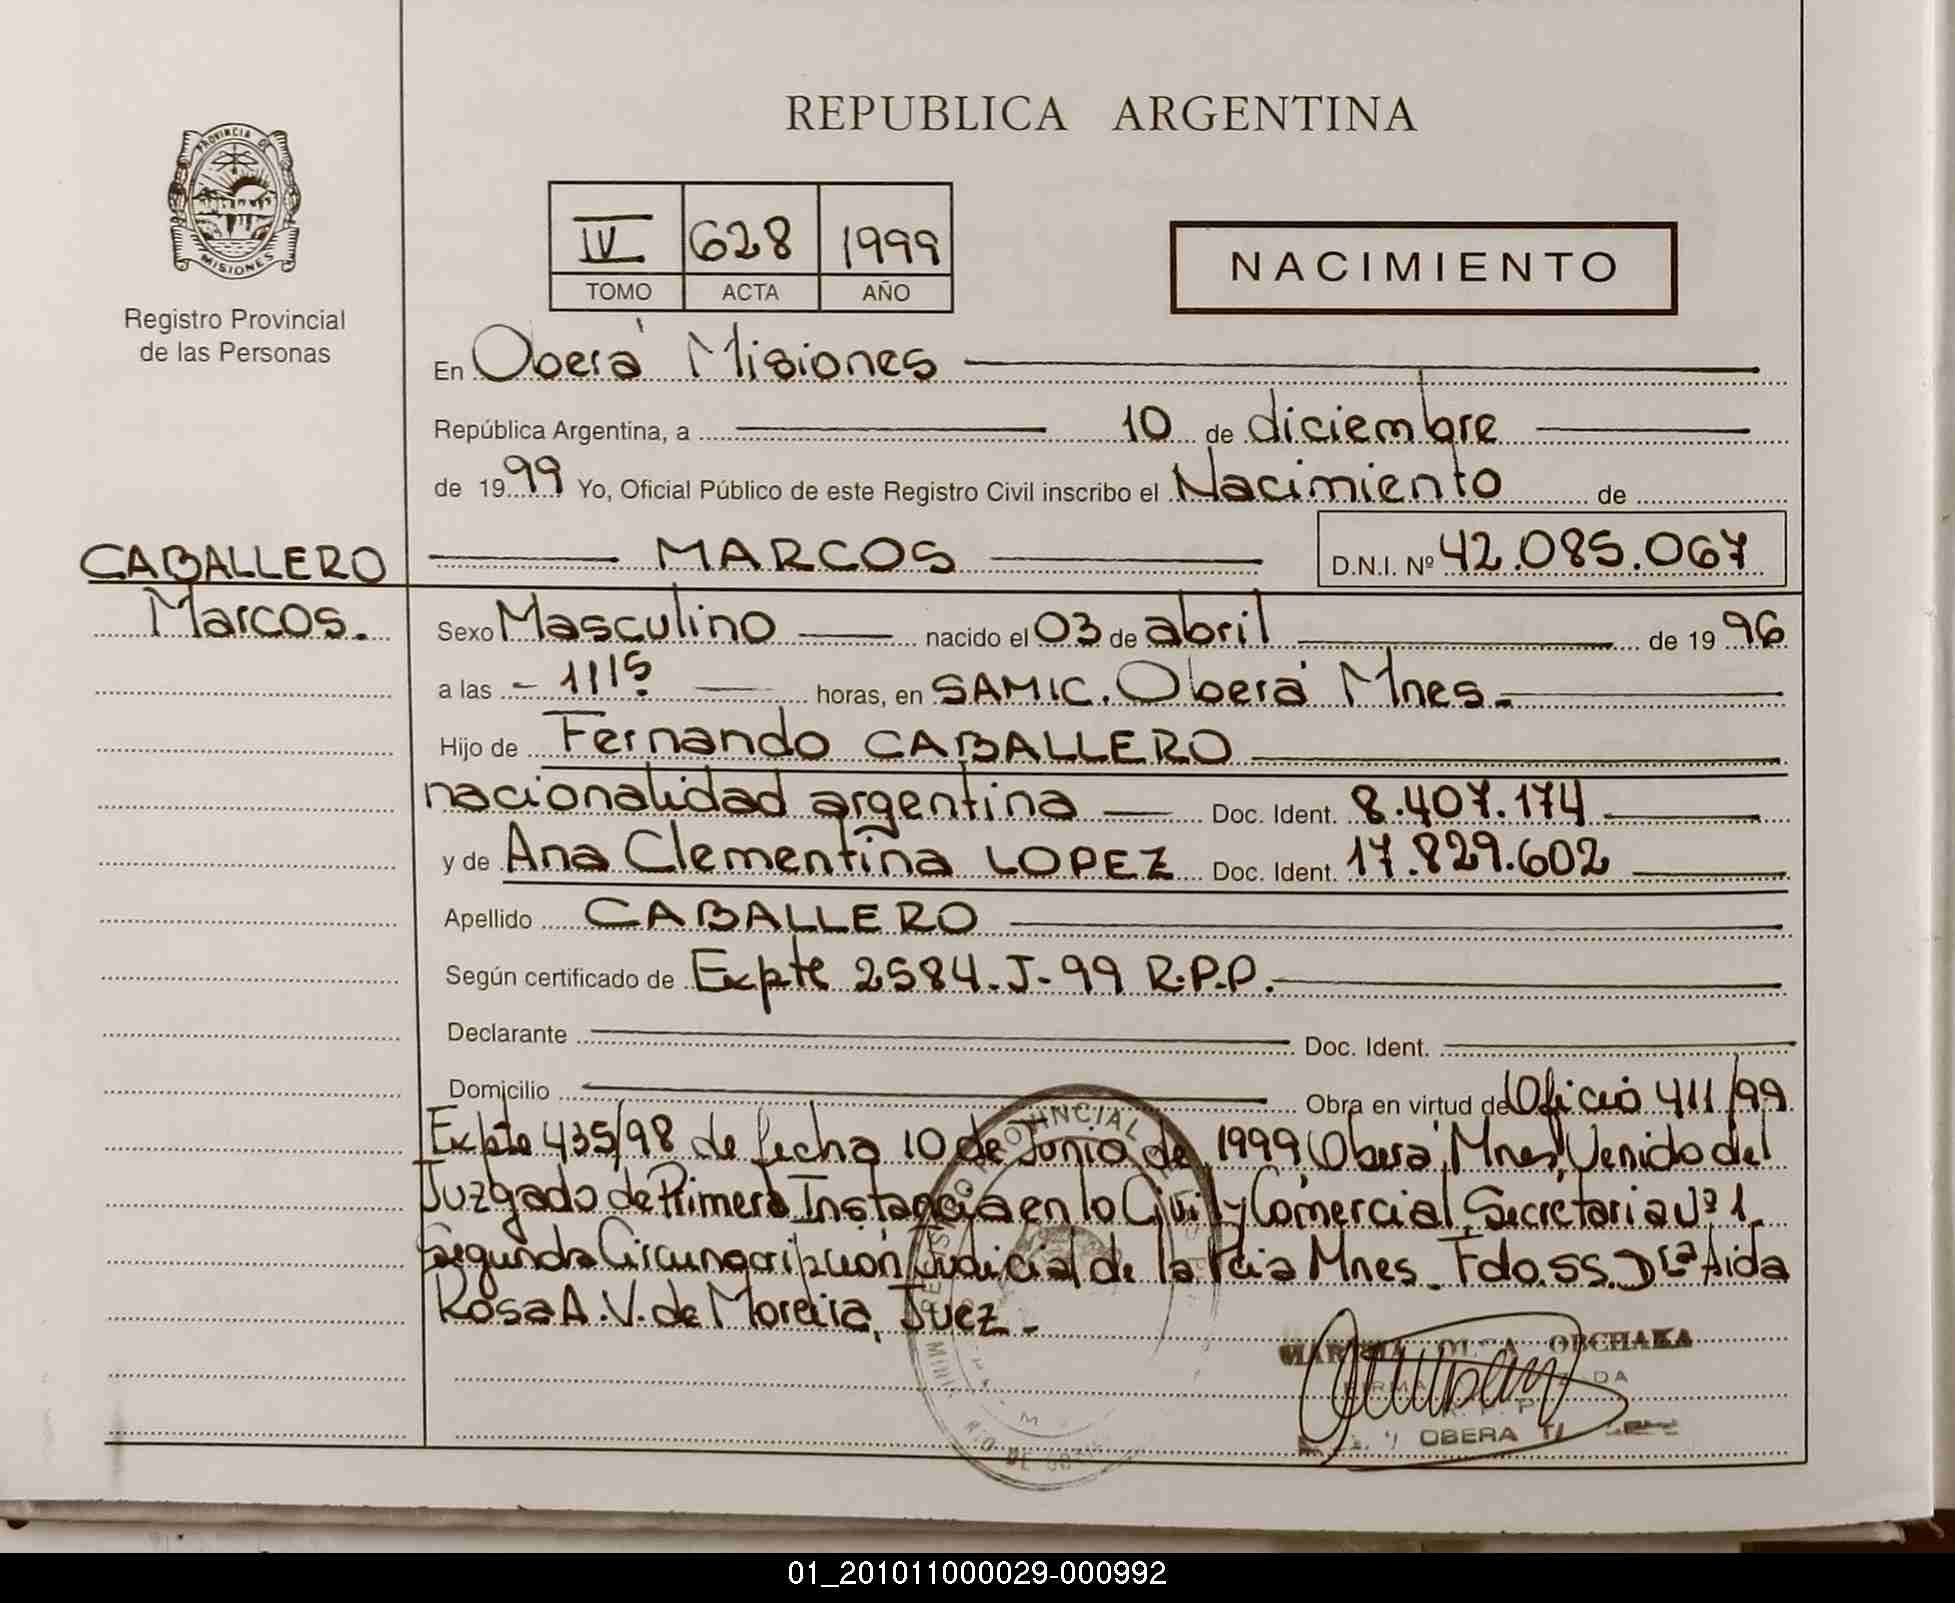 REPUBLICA ARGENTINA
PROVINCIA DE
MISIONES
Registro Provincial
de las Personas
IV 628 1999
TOMO ACTA AÑO
NACIMIENTO
En Oberá Misiones
República Argentina, a 10 de diciembre
de 1999 Yo, Oficial Público de este Registro Civil inscribo el Nacimiento de
CABALLERO
Marcos.
MARCOS D.N.I. Nº 42.085.067
Sexo Masculino nacido el 03 de abril de 1996
a las - 1115 horas, en SAMIC. Oberá Mnes.-
Hijo de Fernando CABALLERO
nacionalidad argentina Doc. Ident. 8.407.174
y de Ana Clementina LOPEZ Doc. Ident. 17.829.602
Apellido CABALLERO
Según certificado de Expte 2584-J-99 R.P.P.
Declarante Doc. Ident.
Domicilio Obra en virtud de Oficio 411/99
Expte 435/98 de fecha 10 de Junio de 1999 Oberá, Mnes, Venido del
Juzgado de Primera Instancia en lo Civil y Comercial, Secretaria Nº 1
Segunda Circunscripción Judicial de la Pcia Mnes. Fdo. SS. Dra Aida
Rosa A. V. de Moreira, Juez.-
OBCHAKA
FIRMA
OBERA
01_201011000029-000992